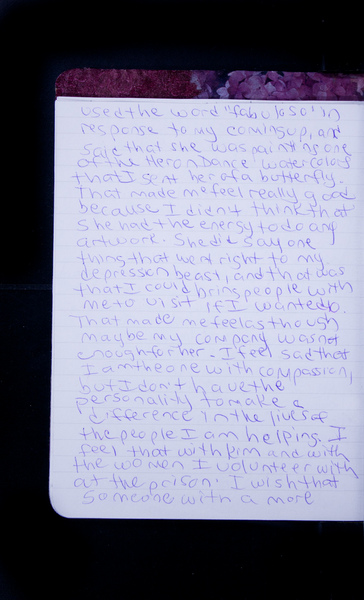 used the word "fabuloso" in
response to my coming up, and
said that she was painting one
of the Heron Dance watercolors
that I sent her of a butterfly.
That made me feel really good
because I didn't think that
she had the energy to do any
artwork. She did say one
thing that went right to my
depression beast, and that was
that I could bring people with
me to visit if I wanted to.
That made me feel as though
maybe my company was not
enough for her. I feel sad that
I am the one with compassion,
but I don't have the
personality to make a
difference in the lives of
the people I am helping. I
feel that with Kim and with
the women I volunteer with
at the prison. I wish that
someone with a more